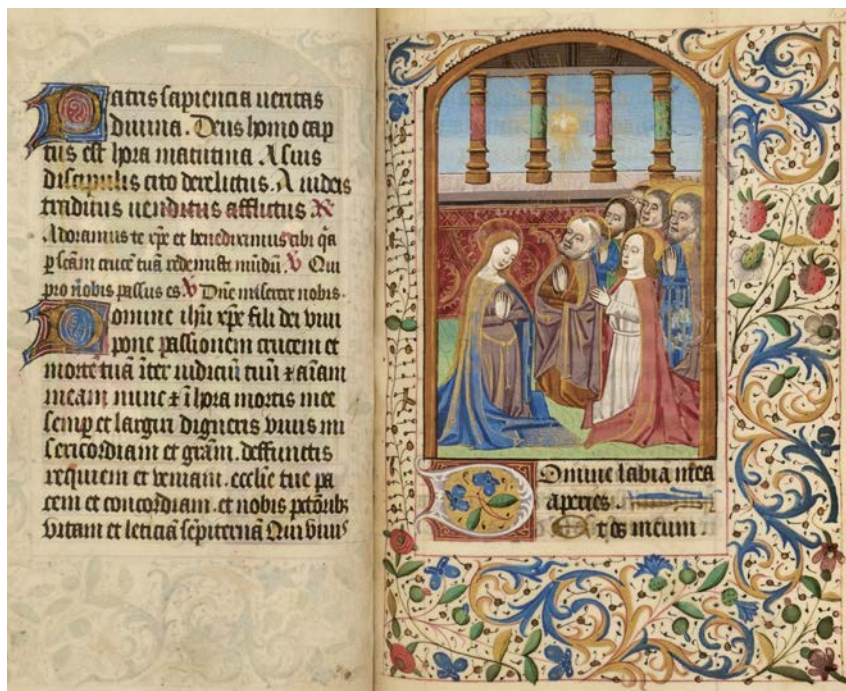 Patris sapiencia ueritas
diuina. Deus homo cap
tus est hora matutina. A suis
discipulis cito derelictus. A iudeis
traditus uenditus afflictus. R
Adoramus te xpe et benediximus tibi qa
p scam crucē tuā redemisti mūdū. V Qui
pro nobis passus es. V Dne miserere nobis.
Domine ihu xpe fili dei viui
pone passionem crucem et
mortē tuā īter iudiciū tuū et aīam
meam nunc et ī hora mortis mee
semp et largiri digneris viuis mi
sericordiam et grām. deffunctis
requiem et veniam. ecclie tue pa
cem et concordiam. et nobis pctōribz
vitam et leticiā sēpiternā Qui viuis
Domine labia mea
aperies
t os meum